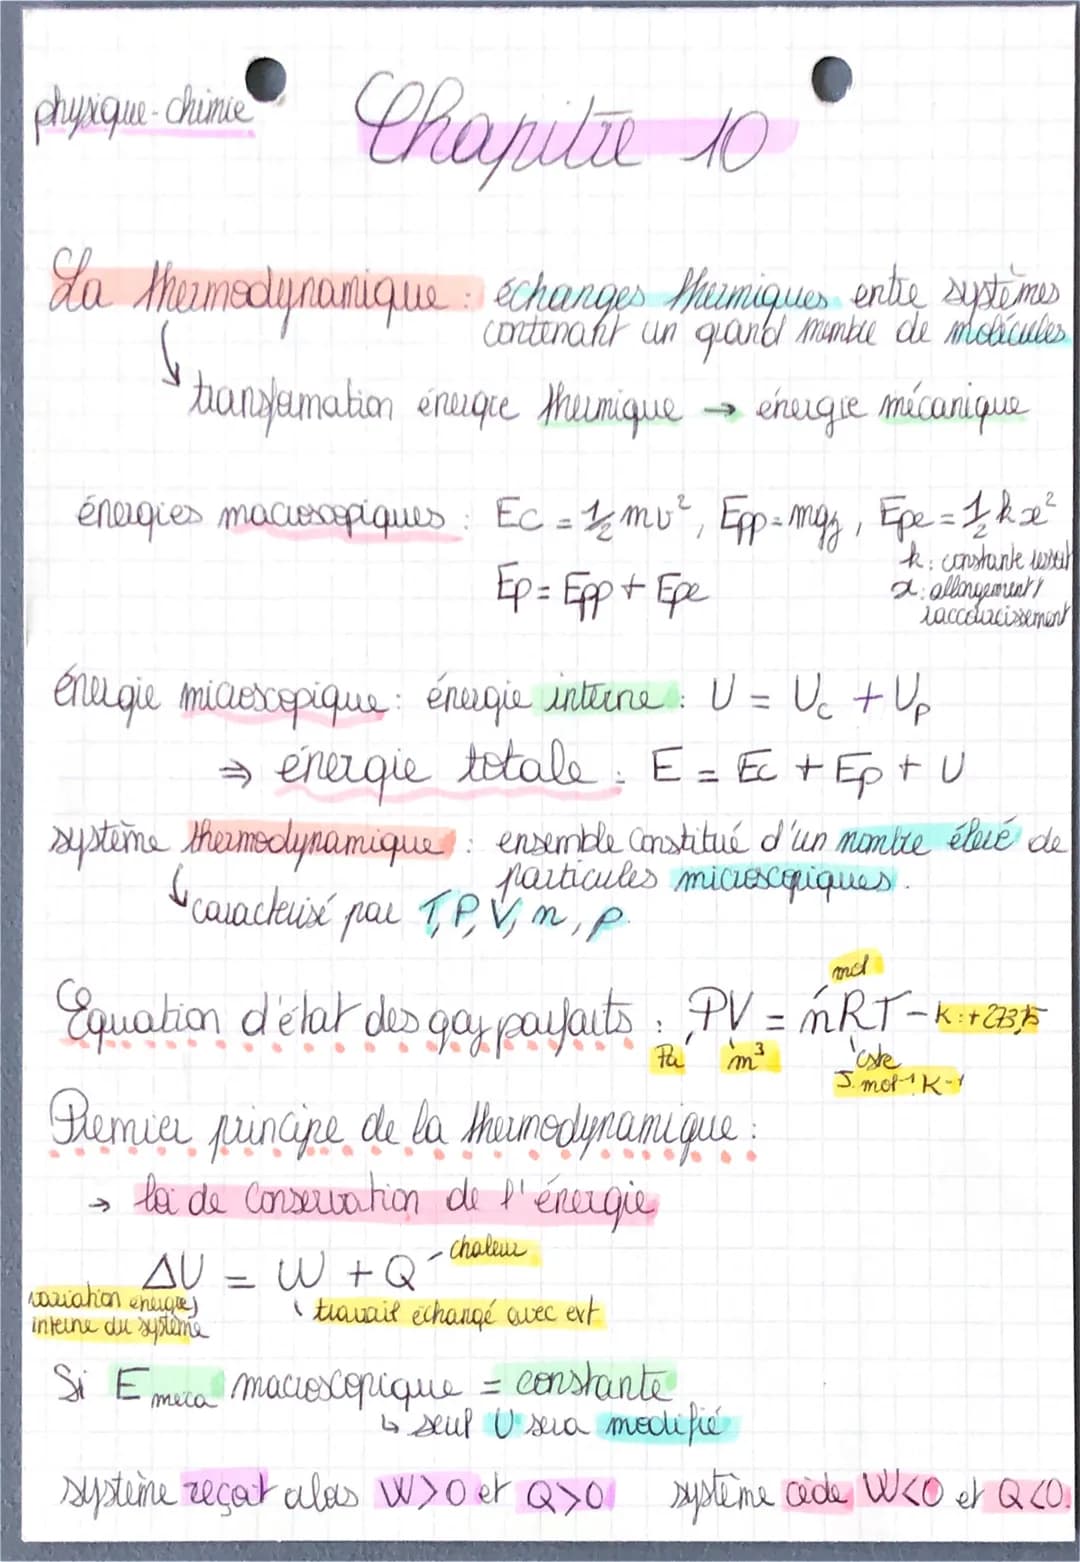 physique-chimie
Chapitre 10
La thermodynamique : échanges thermiques entre systèmes
contenant un grand nombre de molécules
↳ transformation énergie thermique → énergie mécanique
énergies macroscopiques : Ec = 1/2 mv², Epp = mgz, Epe = 1/2 kx²
k : constante ressort
Ep = Epp + Epe
x : allongement/
raccourcissement
énergie microscopique : énergie interne : U = Uc + Up
⇒ énergie totale : E = Ec + Ep + U
système thermodynamique : ensemble constitué d'un nombre élevé de
particules microscopiques.
↳ caractérisé par T, P, V, n, ρ.
mol
Equation d'état des gaz parfaits : PV = nRT - K : +273,15
Pa m³ cste
J.mol⁻¹.K⁻¹
Premier principe de la thermodynamique :
→ loi de conservation de l'énergie
ΔU = W + Q - chaleur
variation énergie
interne du système
travail échangé avec ext
Si E meca macroscopique = constante
↳ seul U sera modifié
système reçoit alors W>0 et Q>0 système cède W<0 et Q<0.